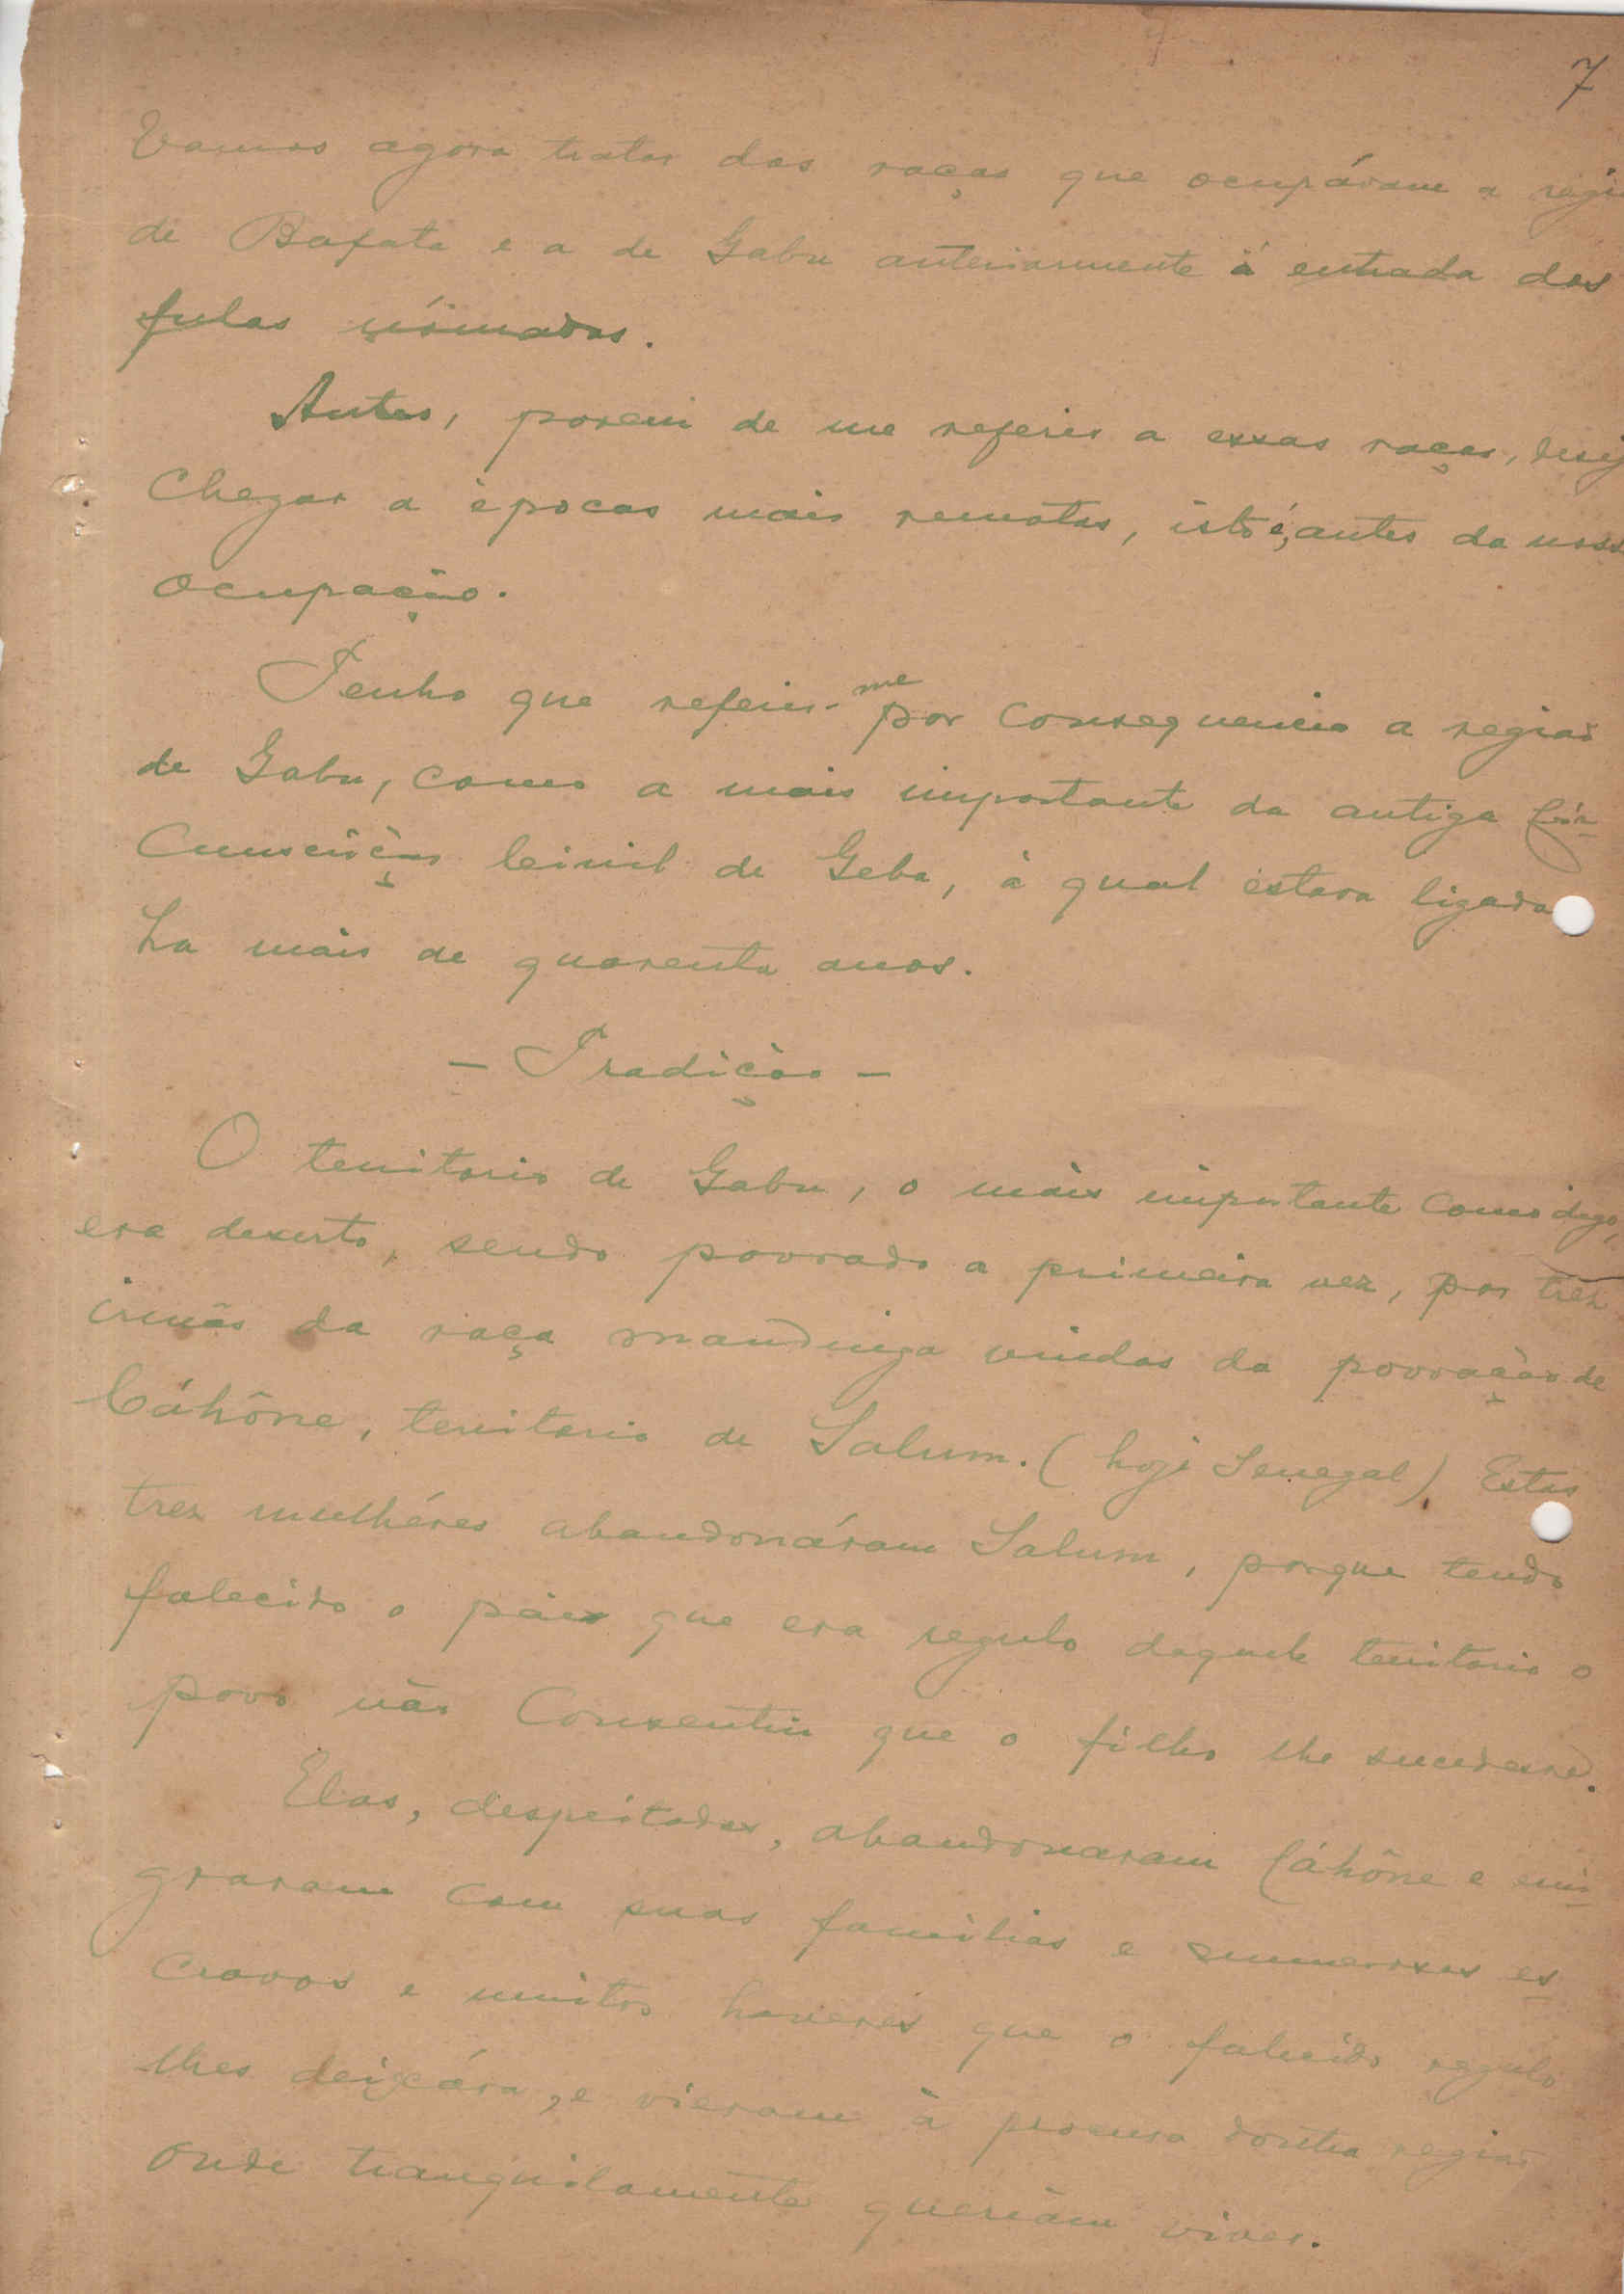 7
Vamos agora tratar das raças que ocupáram a regi
de Bafata e a de Gabu anteriormente á entrada dos
fulas nómadas.
Antes, porem de me referir a essas raças, desej
chegar a èpocas mais remotas, isto é, antes da noss
ocupação.
Tenho que referir-me por consequencia a região
de Gabu, como a mais importante da antiga Cir-
cunscrição Civil de Geba, à qual estava ligada
ha mais de quarenta anos.
- Tradição -
O territorio de Gabu, o mais importante como digo,
era deserto, sendo povoado a primeira vez, por trez
irmãs da raça mandinga vindas da povoação de
Cáhône, territorio de Salum. (hoje Senegal). Estas
trez mulhéres abandonáram Salum, porque tendo
falecido o pae que era regulo daquele territorio o
povo não consentiu que o filho lhe sucedesse.
Elas, despeitadas, abandonaram Cáhône e emi-
graram com suas familias e numerosos es-
cravos e muitos haveres que o falecido regulo
lhes deixára, e vieram à procura doutra região
onde tranquilamente queriam viver.